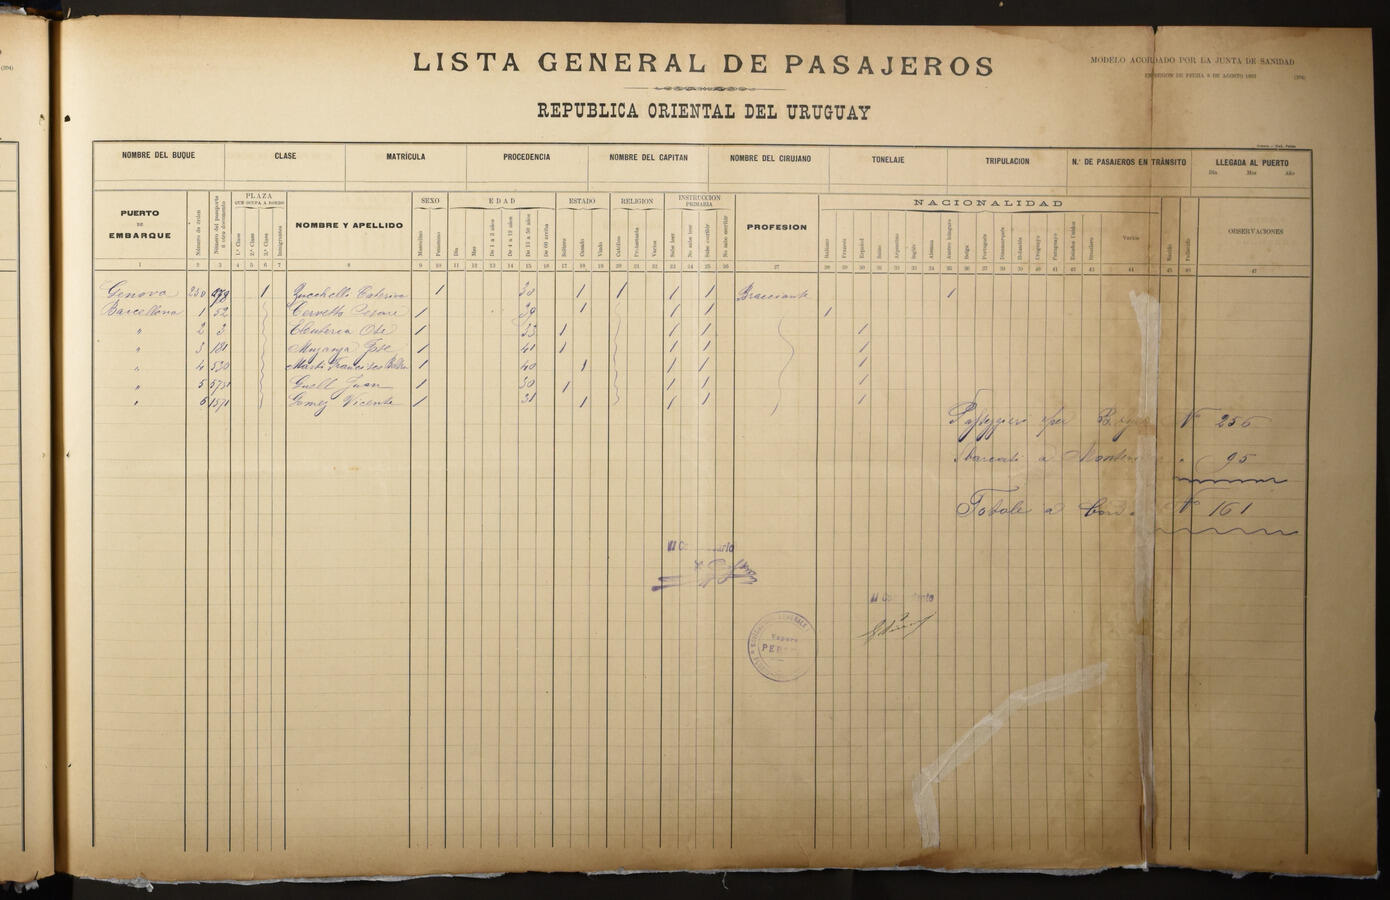 LISTA GENERAL DE PASAJEROS
MODELO ACORDADO POR LA JUNTA DE SANIDAD
EN SESION DE FECHA 8 DE AGOSTO
REPUBLICA ORIENTAL DEL URUGUAY
NOMBRE DEL BUQUE CLASE MATRÍCULA PROCEDENCIA NOMBRE DEL CAPITAN NOMBRE DEL CIRUJANO TONELAJE TRIPULACION N.º DE PASAJEROS EN TRÁNSITO LLEGADA AL PUERTO
Día Mes Año
PUERTO DE EMBARQUE
Número de orden
Número del pasaporte ú otro documento
PLAZA QUE OCUPA A BORDO
1.ª Clase 2.ª Clase 3.ª Clase Inmigrantes
NOMBRE Y APELLIDO
SEXO
Masculino Femenino
EDAD
Día Mes De 1 a 3 años De 4 a 12 años De 13 a 50 años De 60 arriba
ESTADO
Soltero Casado Viudo
RELIGION
Católica Protestante Varias
INSTRUCCION PRIMARIA
Sabe leer No sabe leer Sabe escribir No sabe escribir
PROFESION
NACIONALIDAD
Italiano Francés Español Suizo Argentino Inglés Alemán Austro húngaro Belga Portugués Dinamarqués Holandés Uruguayo Paraguayo Estados Unidos Brasilero Varias
Nacido Fallecido
OBSERVACIONES
2 3 4 5 6 7 8 9 10 11 12 13 14 15 16 17 18 19 20 21 22 23 24 25 26 27 28 29 30 31 32 33 34 35 36 37 38 39 40 41 42 43 44 45 46 47
Genova 250 Zucchelli Caterina 30 Bracciante
Barcellona 1 52 Cervetto Cesare 39
" 2 3 33
" 3 181 41
" 4 530 Marti Francisco 40
" 5 Guell Juan 30
" 6 1571 Gomez Vicente 31
Passeggieri per N 256
Sbarcati a " 95
Totale a N 161
Il
Il
Vapore